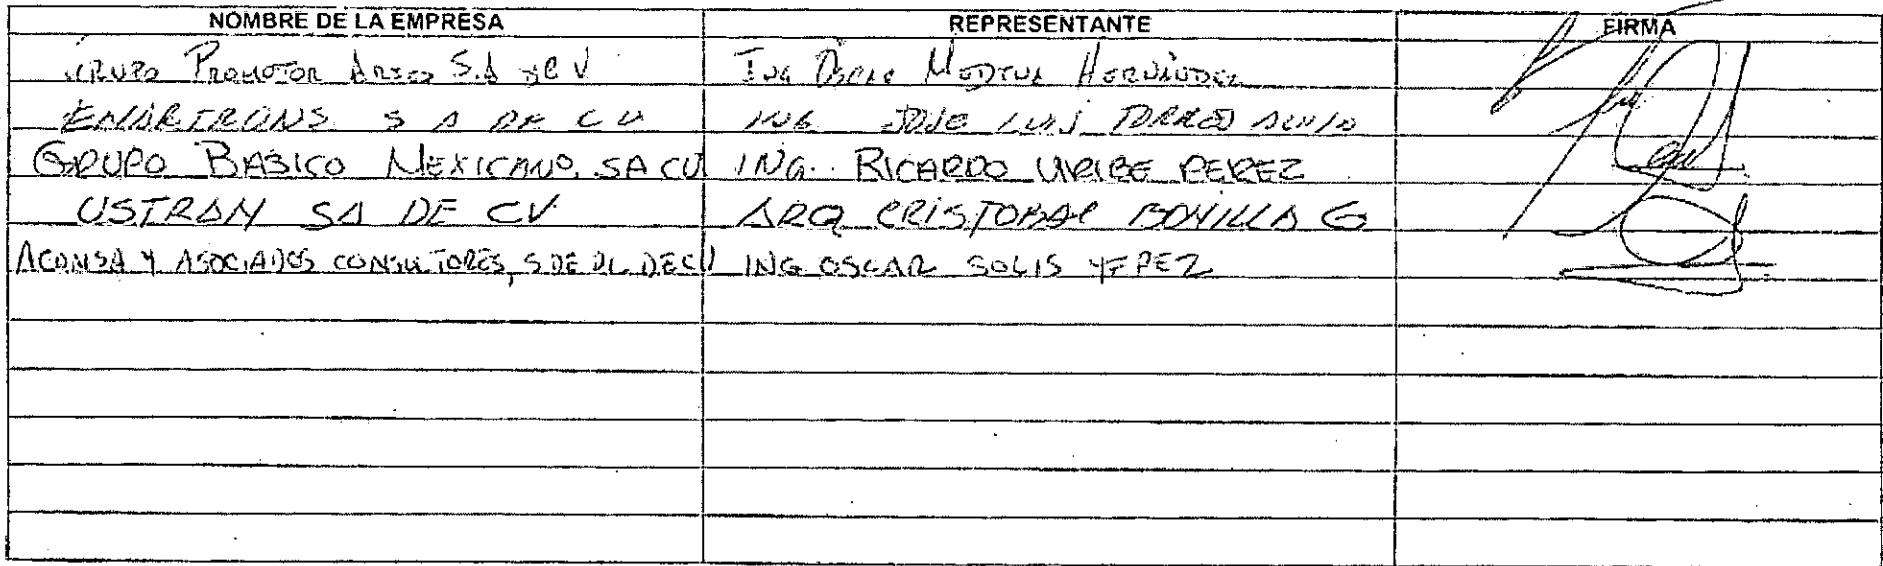 NOMBRE DE LA EMPRESA REPRESENTANTE FIRMA
GRUPO PROMOTOR ARIES S.A DE C V ING OSCAR MEDINA HERNÁNDEZ
S A DE C V ING JOSE LUIS TORRES
GRUPO BASICO MEXICANO, SA CV ING. RICARDO URIBE PEREZ
USTRAM SA DE CV ARQ CRISTOBAL BONILLA G
ACONSA Y ASOCIADOS CONSULTORES, S DE RL DE CV ING OSCAR SOLIS YEPEZ